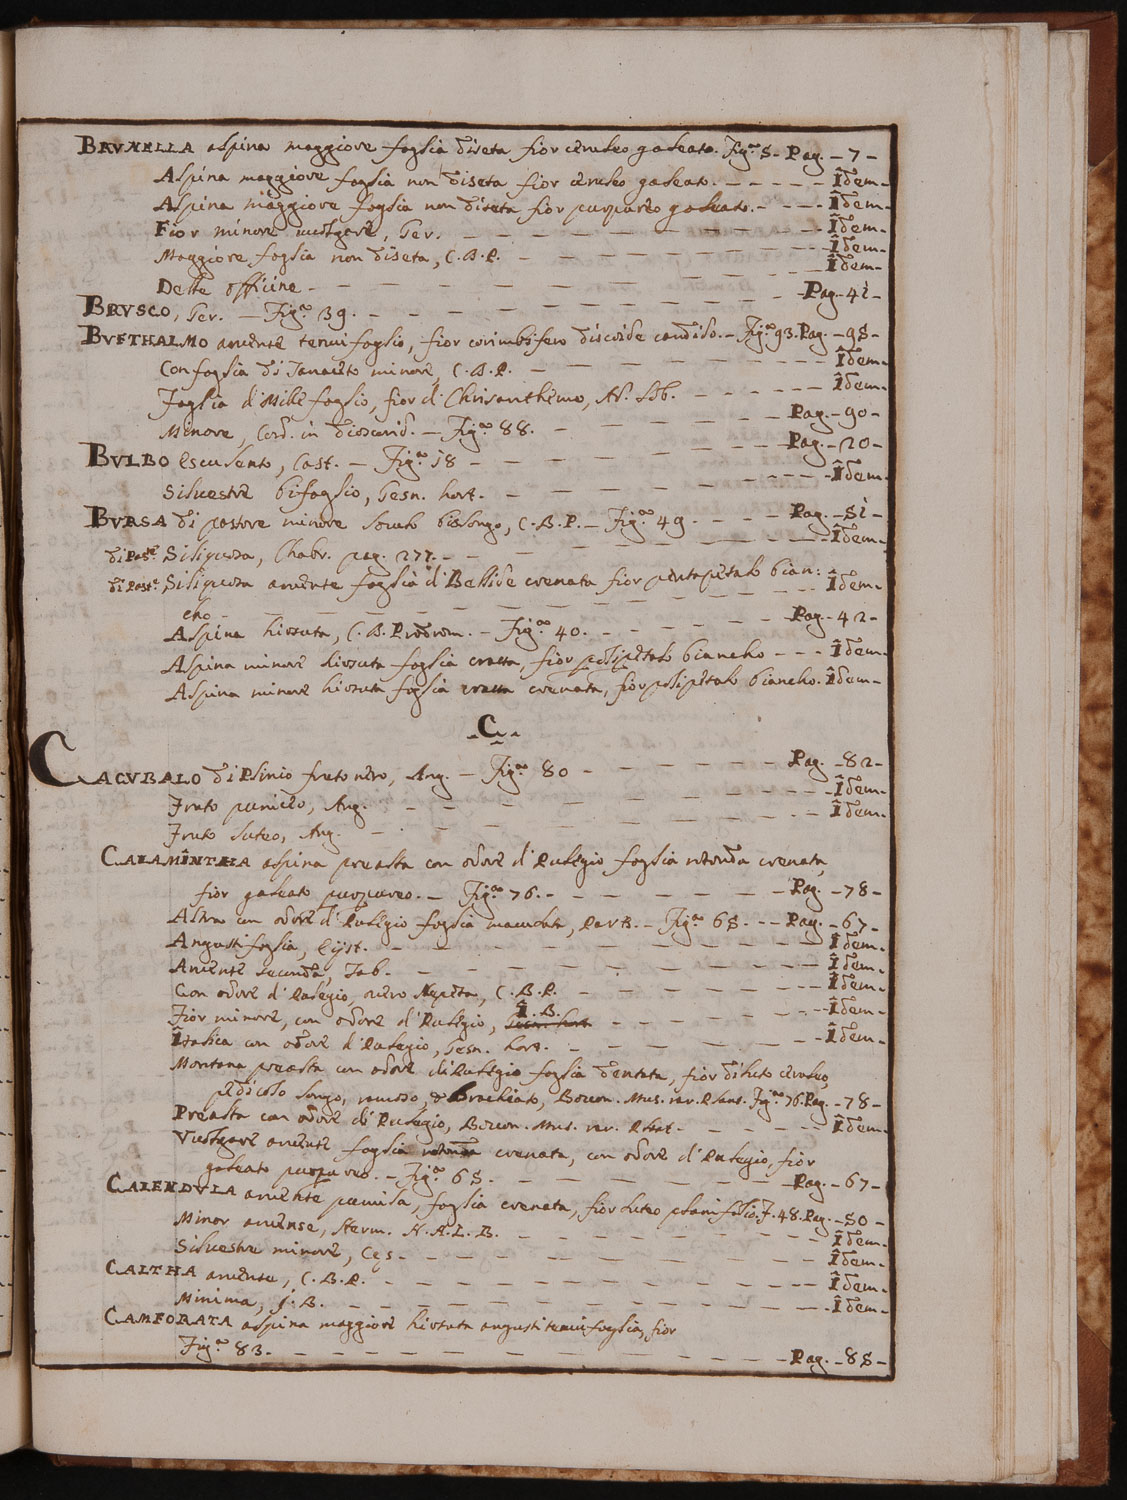 BRVNELLA alpina maggiore foglia diseta fior ceruleo galeato. Fig.ª 8 - Pag. - 7 -
Alpina maggiore foglia non diseta fior ceruleo galeato. - - - - - Îdem -
Alpina maggiore foglia non diseta fior purpureo galeato. - - - Îdem -
Fior minore uulgare, Ger. - - - - - - - - - Îdem -
Maggiore foglia non diseta, C.B.P. - - - - - - - Îdem -
Delle officine - - - - - - - - - - Îdem -
BRVSCO, Ger. - Fig.ª 39. - - - - - - - - - Pag. - 41 -
BVFTHALMO aruense tenuifoglio, fior corimbifero discoide candido. - Fig.ª 93. Pag. - 98 -
Con foglia di Tanaceto minore, C.B.P. - - - - - - - Îdem -
Foglia di Mille foglio, fior di Chrisanthemo, Ad. Lob. - - - - Îdem -
Minore, Cord. in dioscorid. - Fig.ª 88. - - - - - - Pag. - 90 -
BVLBO esculento, Cast. - Fig.ª 18 - - - - - - - Pag. - 20 -
Siluestre bifoglio, Gesn. hort. - - - - - - - - Îdem -
BVRSA di pastore minore loculo oblongo, C.B.P. - Fig.ª 49 - - - - Pag. - 51 -
di Past.e Siliquosa, Chabr. pag. 277. - - - - - - - - Îdem -
di Past.e Siliquosa aruense foglia di Bellide crenata fior pentapetalo bian:
cho - - - - - - - - - - - Îdem -
Alpina hirsuta, C.B. Prodrom. - Fig.ª 40. - - - - - Pag. - 42 -
Alpina minore hirsuta foglia crassa, fior polipetalo biancho - - - Îdem -
Alpina minore hirsuta foglia crassa crenata, fior polipetalo biancho. Îdem -
- C. -
CACVBALO di Plinio fruto nero, Ang. - Fig.ª 80 - - - - - Pag. - 82 -
Fruto puniceo, Ang. - - - - - - - - - Îdem -
Fruto luteo, Ang. - - - - - - - - - Îdem -
CALAMÎNTHA alpina prealta con odore di Pulegio foglia rotonda crenata,
fior galeato purpureo. - Fig.ª 76. - - - - - - Pag. - 78 -
Altra con odore di Pulegio foglia maculata, Park. - Fig.ª 65. - - Pag. - 67 -
Angustifoglia, Eijst. - - - - - - - - - Îdem -
Aruense secunda, Tab. - - - - - - - - - Îdem -
Con odore di Pulegio, ouero Nepeta, C.B.P. - - - - - - Îdem -
Fior minore, con odore di Pulegio, Î.B. - - - - - - Îdem -
Îtalica con odore di Pulegio, Gesn. hort. - - - - - - Îdem -
Montana prealta con odore di Pulegio foglia dentata, fior diluto ceruleo,
pedicolo longo, ramoso, & brachiato, Boccon. Mus. rar. Plant. Fig.ª 76. Pag. - 78 -
Prealta con odore di Pulegio, Boccon. Mus. rar. Plant. - - - - - Îdem -
Vulgare aruense foglia rotonda crenata, con odore di Pulegio, fior
galeato purpureo. - Fig.ª 65. - - - - - - - Pag. - 67 -
CALENDVLA aruense pumila, foglia crenata, fior luteo planifolio. F. 48. Pag. - 50 -
Minor aruense, Herm. H.A.L.B. - - - - - - - Îdem -
Siluestre minore, Cęs - - - - - - - - - Îdem -
CALTHA aruense, C.B.P. - - - - - - - - - Îdem -
Minima, J.B. - - - - - - - - - - Îdem -
CAMFORATA alpina maggiore hirsuta angustitenuifoglia, fior
Fig.ª 83. - - - - - - - - - - Pag. - 85 -